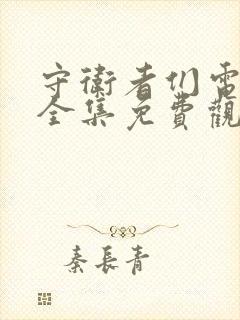 守衛者们電
全集免費觀
秦長青